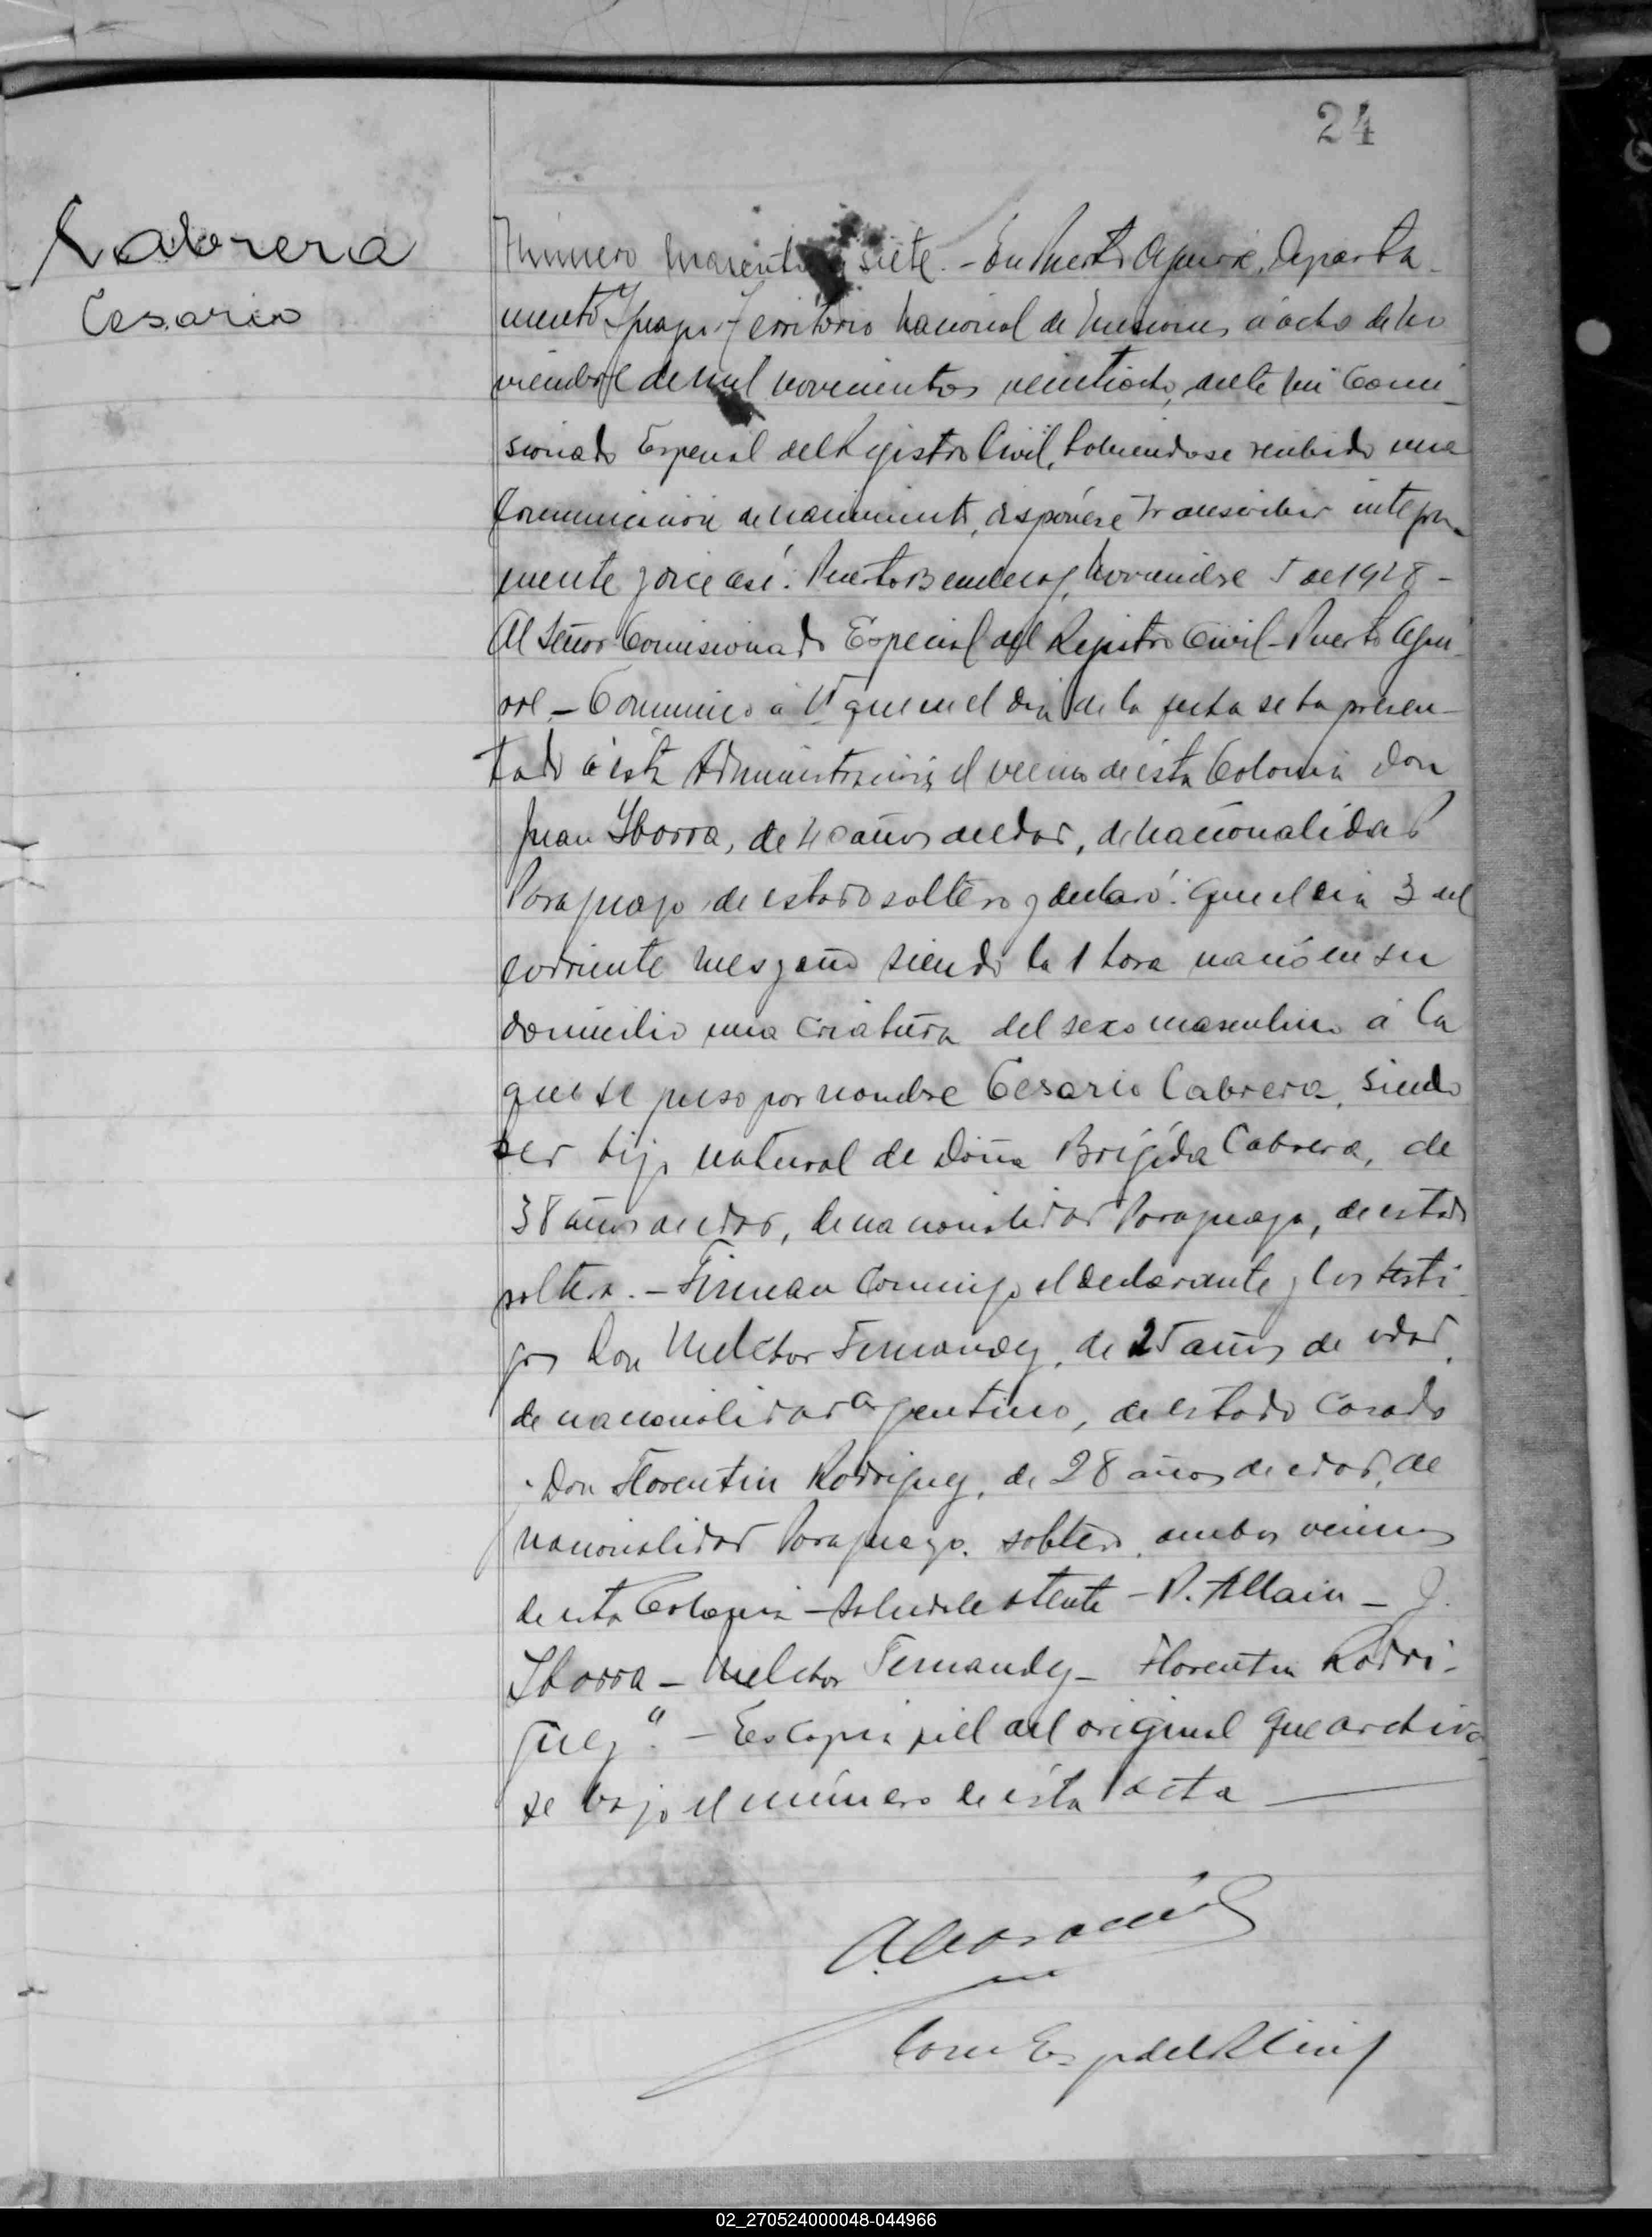 24
Cabrera
Cesario
Número cuarenta y siete. - En Puerto Aguirre, Departa-
mento Iguazú Territorio Nacional de Misiones á ocho de No
viembre de mil novecientos veintiocho, ante mi Comi-
sionado Especial del Registro Civil, habiendose recibido una
comunicación de nacimiento, dispónese transcribir integra-
mente y dice asi: Puerto Bemberg, Noviembre 5 de 1928 -
Al Señor Comisionado Especial del Registro Civil - Puerto Agui-
rre. - Comunico á Vd que en el dia de la fecha se ha presen-
tado á ésta Administración, el vecino de ésta Colonia Don
Juan Ibarra, de 40 años de edad, de nacionalidad
Paraguayo, de estado soltero y declaró: Que el dia 3 del
corriente mes y año siendo la 1 hora nació en su
domicilio una criatura del sexo masculino á la
que se puso por nombre Cesario Cabrera, siendo
ser hijo natural de Doña Brígida Cabrera, de
38 años de edad, de nacionalidad Paraguaya, de estado
soltera. - Firman conmigo el declarante y los testi-
gos Don Melchor Fernandez, de 25 años de edad,
de nacionalidad Argentino, de estado casado
y Don Florentin Rodriguez, de 28 años de edad, de
nacionalidad Paraguayo, soltero, ambos vecinos
de esta Colonia - Saludale atente - P. Allain - J.
Ibarra - Melchor Fernandez - Florentin Rodri-
guez". - Es copia fiel del original que archiva-
se bajo el número de ésta acta
Com Esp del R Civil
02_270524000048-044966